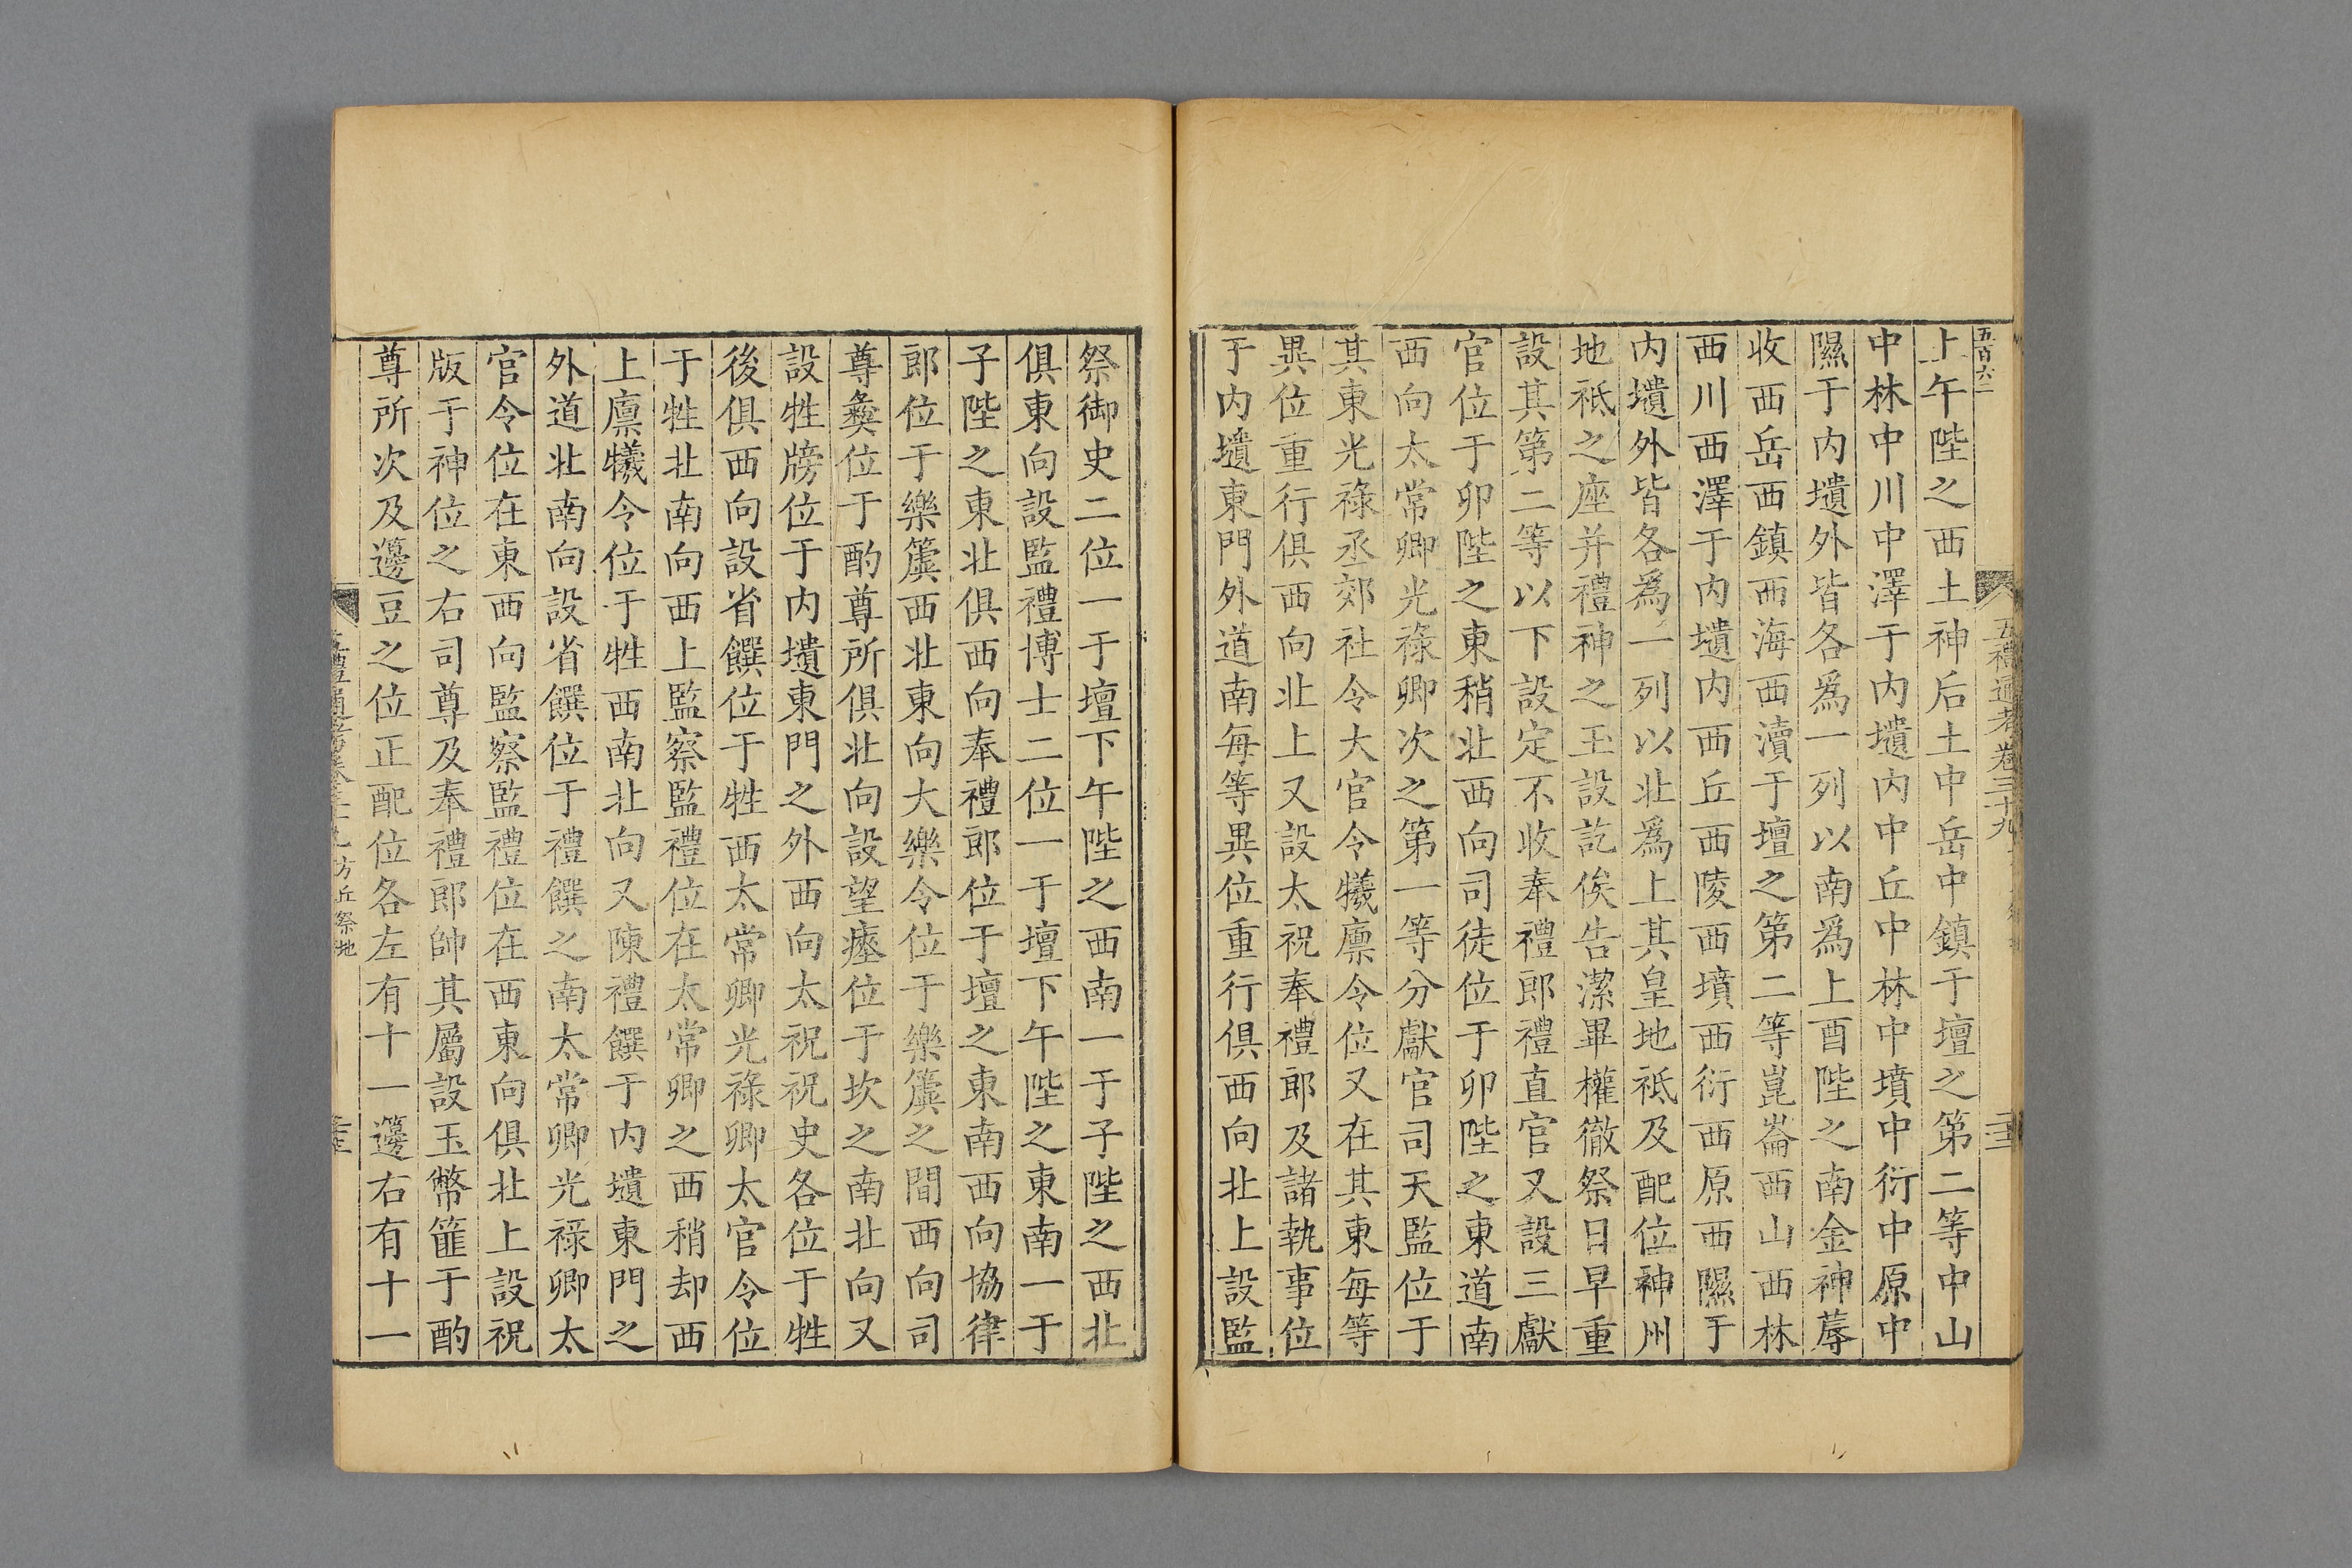 五百六二
五禮通考卷三十九
上午陛之西土神后土中岳中鎮于壇之第二等中山
中林中川中澤于内壝内中丘中林中墳中衍中原中
隰于内壝外皆各爲一列以南爲上酉陛之南金神蓐
收西岳西鎮西海西瀆于壇之第二等崑崙西山西林
西川西澤于内壝内西丘西陵西墳西衍西原西隰于
内壝外皆各爲一列以北爲上其皇地祇及配位神州
地祇之座并禮神之玉設訖俟告潔畢權徹祭日早重
設其第二等以下設定不收奉禮郎禮直官又設三獻
官位于卯陛之東稍北西向司徒位于卯陛之東道南
西向太常卿光祿卿次之第一等分獻官司天監位于
其東光祿丞郊社令大官令犧廪令位又在其東每等
異位重行俱西向北上又設太祝奉禮郎及諸執事位
于内壝東門外道南每等異位重行俱西向北上設監
祭御史二位一于壇下午陛之西南一于子陛之西北
俱東向設監禮博士二位一于壇下午陛之東南一于
子陛之東北俱西向奉禮郎位于壇之東南西向協律
郎位于樂簴西北東向大樂令位于樂簴之間西向司
尊彝位于酌尊所俱北向設望瘞位于坎之南北向又
設牲牓位于内壝東門之外西向太祝祝史各位于牲
後俱西向設省饌位于牲西太常卿光祿卿太官令位
于牲北南向西上監察監禮位在太常卿之西稍却西
上廪犧令位于牲西南北向又陳禮饌于内壝東門之
外道北南向設省饌位于禮饌之南太常卿光祿卿太
官令位在東西向監察監禮位在西東向俱北上設祝
版于神位之右司尊及奉禮郎帥其屬設玉幣篚于酌
尊所次及籩豆之位正配位各左有十一籩右有十一
方丘祭地